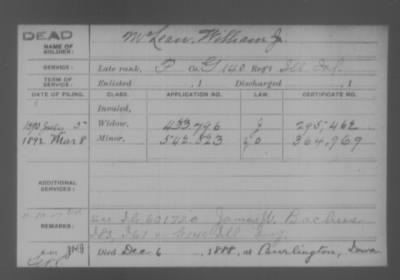 DEAD
NAME OF SOLDIER: McLean, William J.
SERVICE: Late rank, P Co. G 140 Reg't Ill Inf.
TERM OF SERVICE: Enlisted , 1 Discharged , 1
DATE OF FILING. CLASS. APPLICATION NO. LAW. CERTIFICATE NO.
Invalid,
1890 5 Widow, 433.796 295.462
1892 Mar 8 Minor, 542.523 364.969
ADDITIONAL SERVICES:
REMARKS: 601720 James
Died Dec 6 , 1888, at Burlington, Iowa